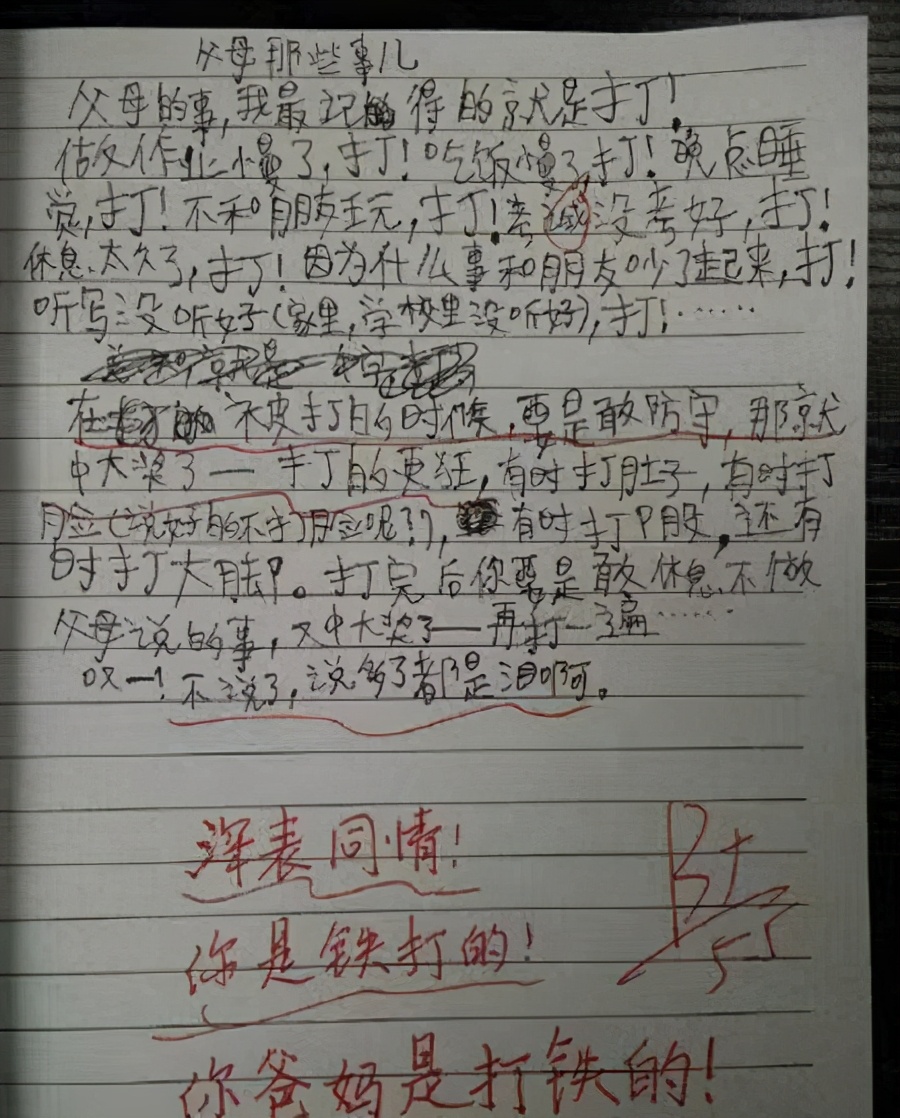 父母那些事儿
父母的事,我最记得的就是打!
做作业慢了,打!吃饭慢了,打!晚点睡
觉,打!不和朋友玩,打!考试没考好,打!
休息太久了,打!因为什么事和朋友吵了起来,打!
听写没听好(家里,学校里没听好),打!……
在被打的时候,要是敢防守,那就
中大奖了——打的更狂,有时打肚子,有时打
脸(说好的不打脸呢?),有时打屁股,还有
时打大腿。打完后你要是敢休息不做
父母说的事,又中大奖了——再打一遍……
哎—!不说了,说多了都是泪啊。
深表同情!
你是铁打的!
B+
5.5
你爸妈是打铁的!